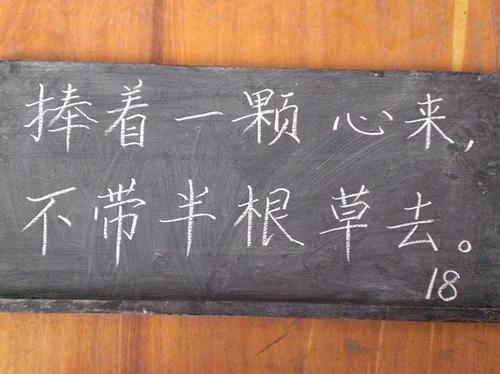 捧着一颗心来,
不带半根草去。
18